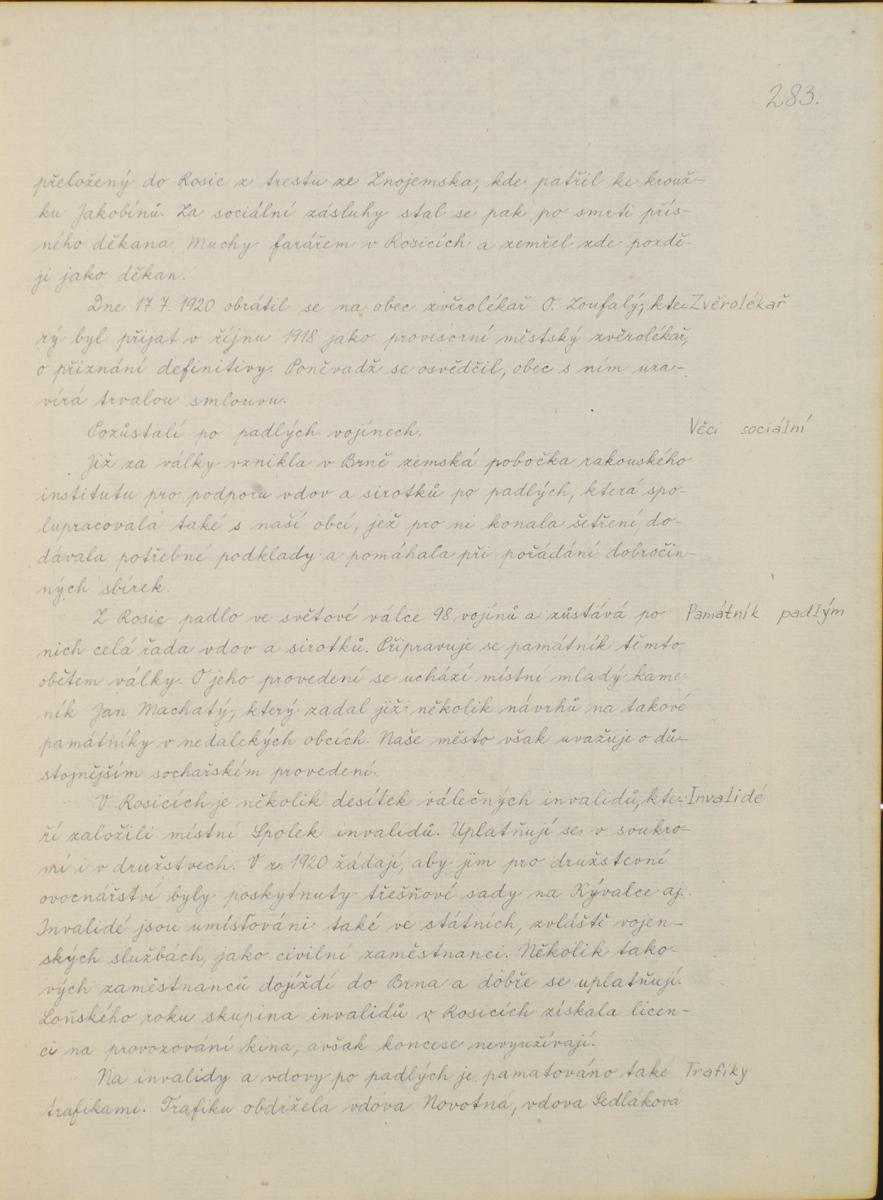 283.
přeložený do Rosic z trestu ze Znojemska, kde patřil ke krouž-
ku Jakobínů. Za sociální zásluhy stal se pak po smrti přís-
ného děkana Muchy farářem v Rosicích a zemřel zde pozdě-
ji jako děkan.
Dne 17 7. 1920 obrátil se na obec zvěrolékař O. Zoufalý, kte- Zvěrolékař
rý byl přijat v říjnu 1918 jako provisorní městský zvěrolékař,
o přiznání definitivy. Poněvadž se osvědčil, obec s ním uza-
vírá trvalou smlouvu.
Pozůstalí po padlých vojínech. Věci sociální
Již za války vznikla v Brně zemská pobočka rakouského
institutu pro podporu vdov a sirotků po padlých, která spo-
lupracovala také s naší obcí, jež pro ni konala šetření, do-
dávala potřebné podklady a pomáhala při pořádání dobročin-
ných sbírek.
Z Rosic padlo ve světové válce 98 vojínů a zůstává po Památník padlým
nich celá řada vdov a sirotků. Připravuje se památník těmto
obětem války. O jeho provedení se uchází místní mladý kame-
ník Jan Machatý, který zadal již několik návrhů na takové
památníky v nedalekých obcích. Naše město však uvažuje o dů-
stojnějším sochařském provedení.
V Rosicích je několik desítek válečných invalidů, kte- Invalidé
ří založili místní Spolek invalidů. Uplatňují se v soukro-
mí i v družstvech. V r. 1920 žádají, aby jim pro družstevní
ovocnářství byly poskytnuty třešňové sady na Kývalce aj.
Invalidé jsou umísťováni také ve státních, zvláště vojen-
ských službách, jako civilní zaměstnanci. Několik tako-
vých zaměstnanců dojíždí do Brna a dobře se uplatňují.
Loňského roku skupina invalidů v Rosicích získala licen-
ci na provozování kina, avšak koncese nevyužívají.
Na invalidy a vdovy po padlých je pamatováno také Trafiky
trafikami. Trafiku obdržela vdova Novotná, vdova Sedláková